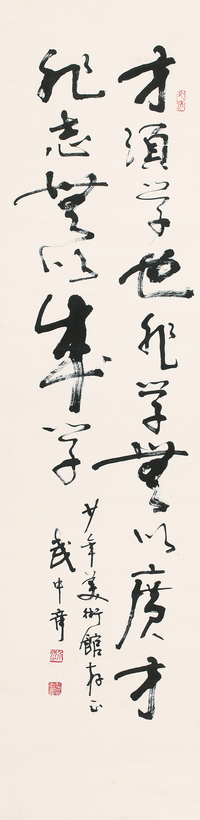 才須学也非学無以廣才
非志無以成学
少年美術館存正
武中奇